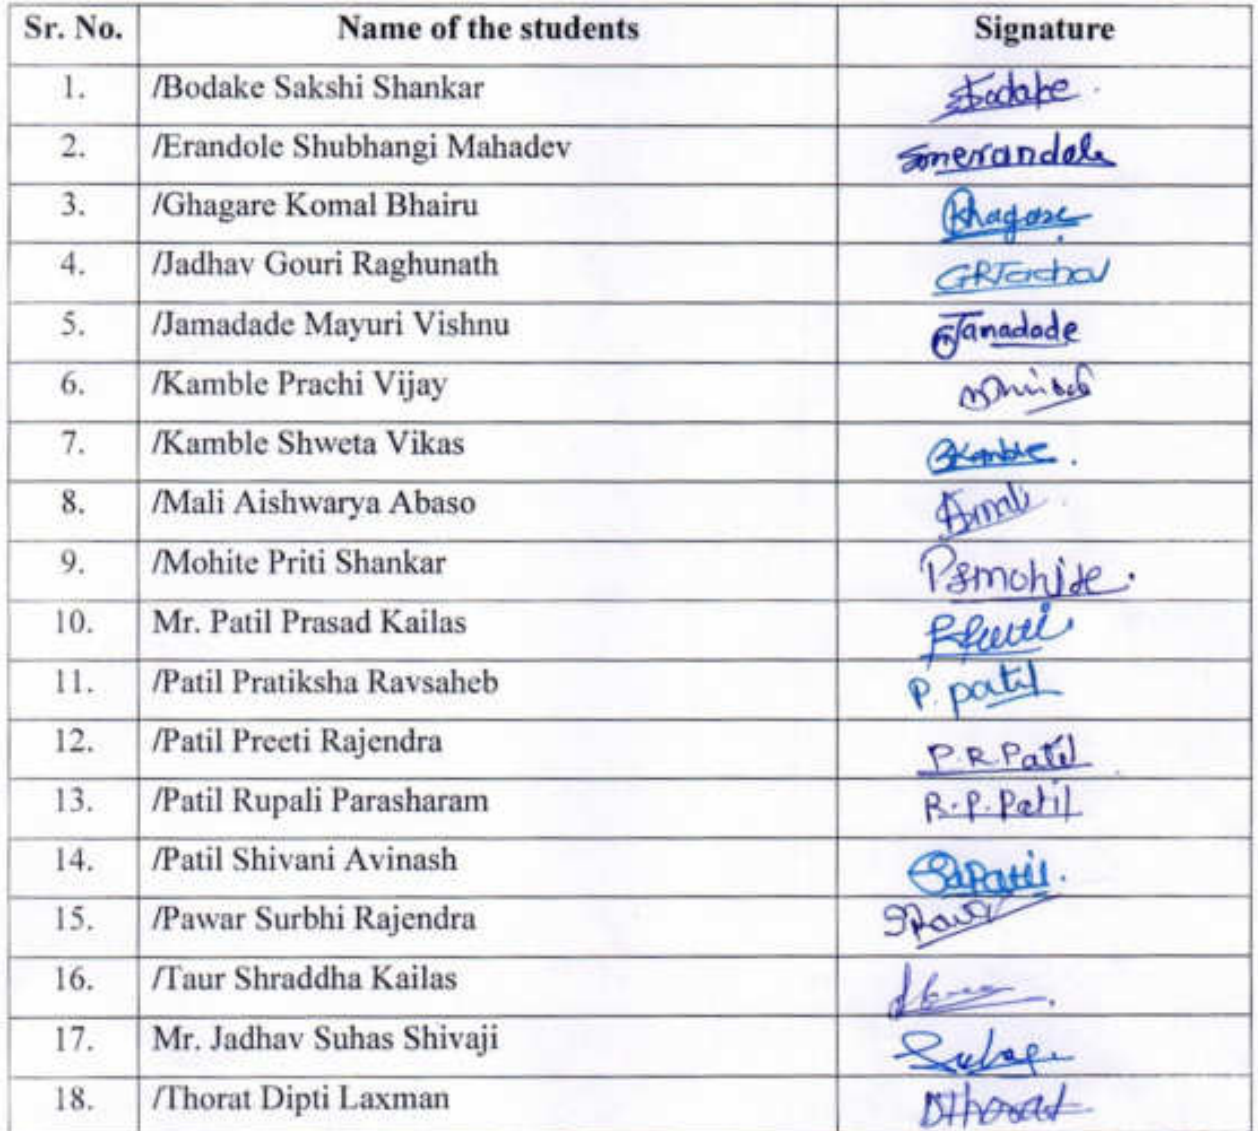 Sr. No. Name of the students Signature
1. /Bodake Sakshi Shankar Sbodake.
2. /Erandole Shubhangi Mahadev Smerandole
3. /Ghagare Komal Bhairu
4. /Jadhav Gouri Raghunath GRJadhav
5. /Jamadade Mayuri Vishnu Jamadade
6. /Kamble Prachi Vijay
7. /Kamble Shweta Vikas SKamble.
8. /Mali Aishwarya Abaso Amali
9. /Mohite Priti Shankar Psmohite.
10. Mr. Patil Prasad Kailas
11. /Patil Pratiksha Ravsaheb P. patil
12. /Patil Preeti Rajendra P.R.Patil
13. /Patil Rupali Parasharam R.P.Patil
14. /Patil Shivani Avinash SAPatil.
15. /Pawar Surbhi Rajendra
16. /Taur Shraddha Kailas
17. Mr. Jadhav Suhas Shivaji
18. /Thorat Dipti Laxman DThorat